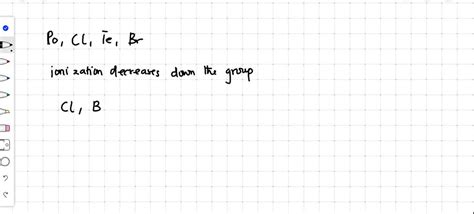 Po, Cl, Te, Br
ionization decreases down the group
Cl, B